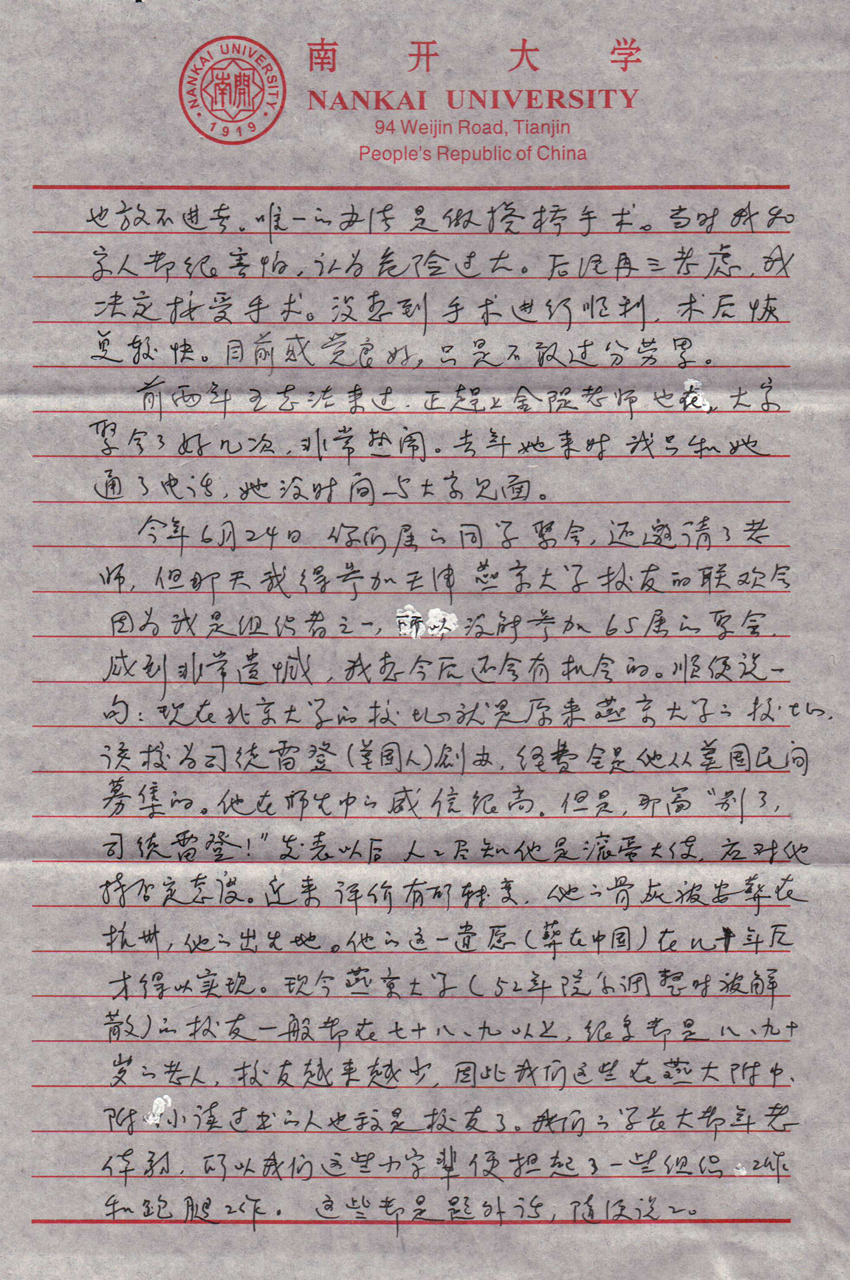 NANKAI UNIVERSITY
南開
1919
南开大学
NANKAI UNIVERSITY
94 Weijin Road, Tianjin
People's Republic of China
也放不进去。唯一的办法是做搭桥手术。当时我和
家人都很害怕，认为危险过大。后经再三考虑，我
决定接受手术。没想到手术进行顺利，术后恢
复较快。目前感觉良好，只是不敢过分劳累。
前两年王志洁来过，正赶上金陵老师也在，大家
聚会了好几次，非常热闹。去年她来时我只和她
通了电话，她没时间与大家见面。
今年6月24日你们届的同学聚会，还邀请了老
师，但那天我得参加天津燕京大学校友的联欢会
因为我是组织者之一，所以没能参加65届的聚会，
感到非常遗憾，我想今后还会有机会的。顺便说一
句：现在北京大学的校址就是原来燕京大学的校址，
该校为司徒雷登(美国人)创办，经费全是他从美国民间
募集的。他在师生中的威信很高。但是，那篇“别了，
司徒雷登！”发表以后人们只知他是滚蛋大使，应对他
持否定态度。近来评价有所转变，他的骨灰被安葬在
杭州，他的出生地。他的这一遗愿(葬在中国)在几十年后
才得以实现。现今燕京大学(52年院系调整时被解
散)的校友一般都在七十八、九以上，很多都是八、九十
岁的老人，校友越来越少，因此我们这些在燕大附中、
附小读过书的人也算是校友了。我们的学长大都年老
体弱，所以我们这些小字辈便担起了一些组织工作
和跑腿工作。这些都是题外话，随便说说。